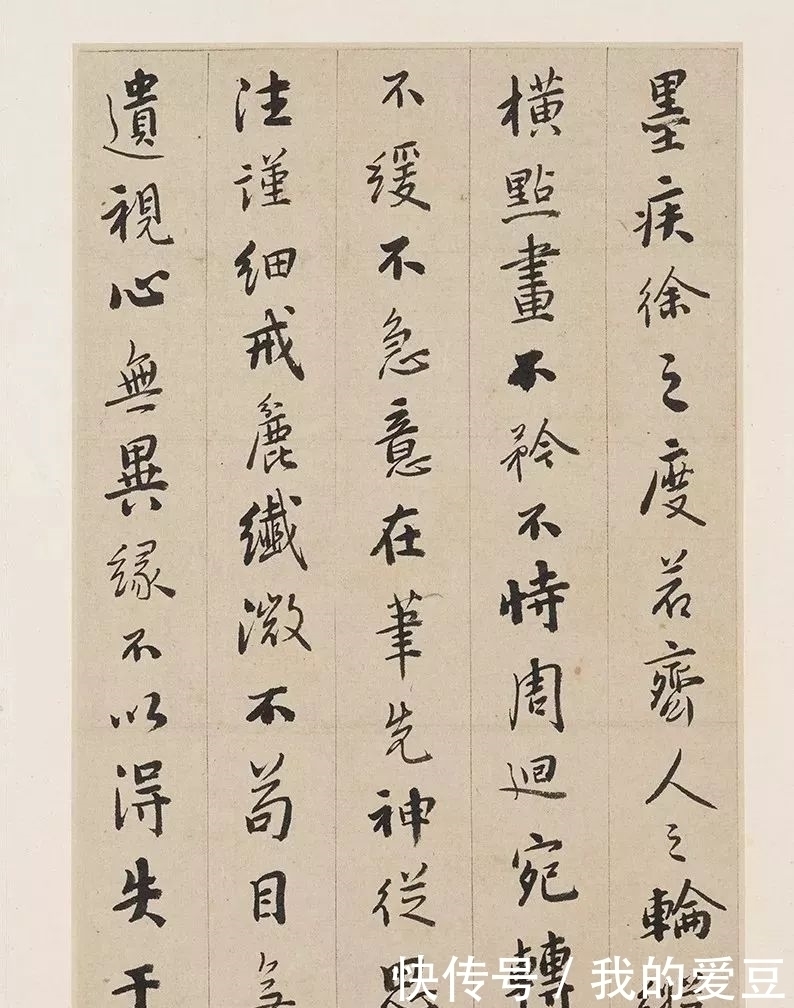 墨疾徐之度若齊人之輪
橫點畫不矜不恃周迴宛轉
不緩不急意在筆先神從思
注謹細戒麁纖微不苟目無
遺視心無異緣不以得失干
快传号 / 我的爱豆